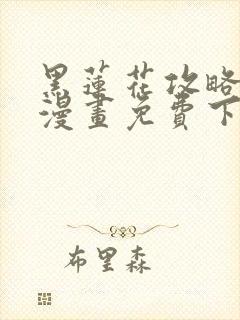 黑蓮花攻略
漫畫免費下
布里森